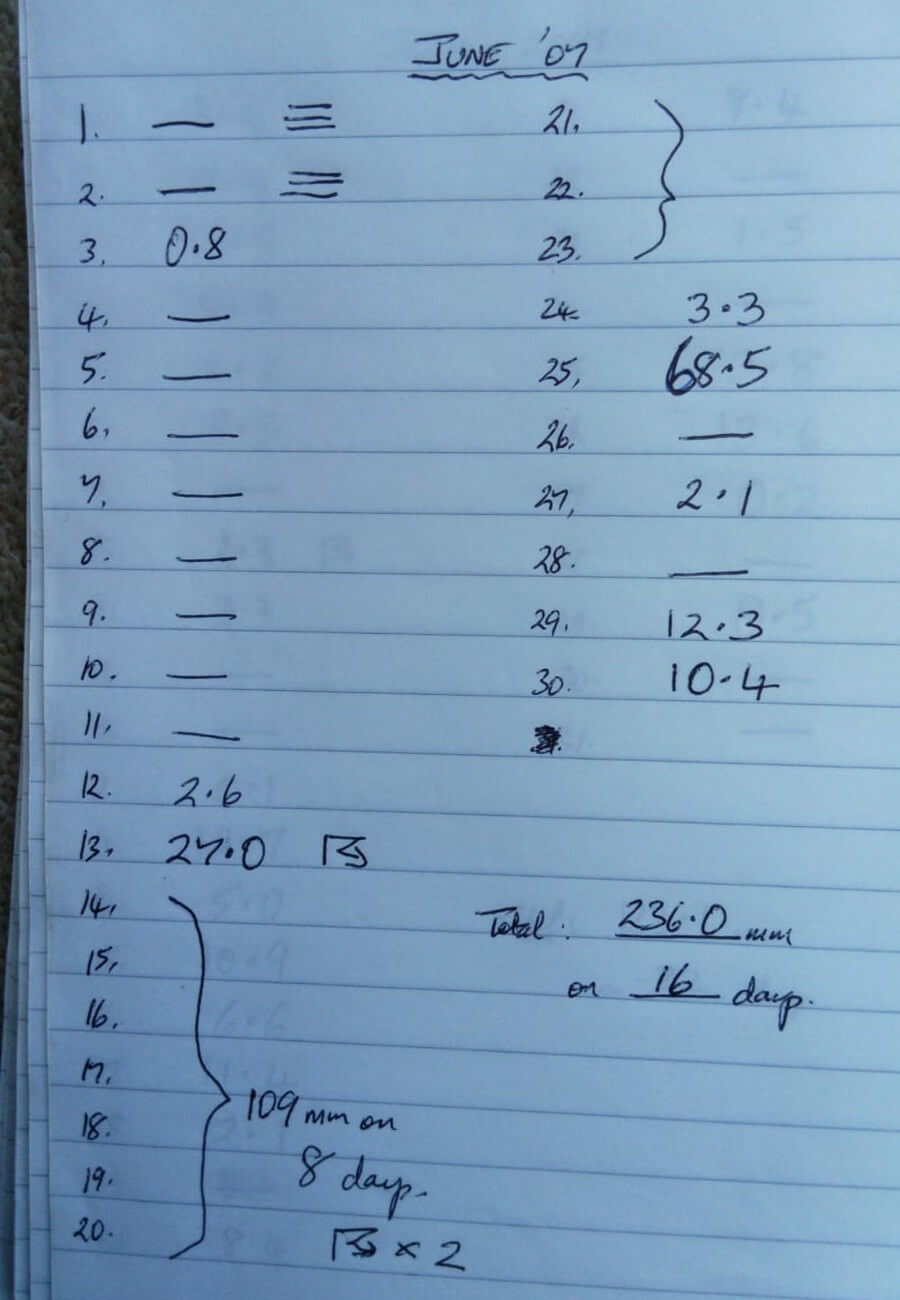 JUNE '07
1. — ≡
2. — ≡
3. 0.8
4. —
5. —
6. —
7. —
8. —
9. —
10. —
11. —
12. 2.6
13. 27.0
14.
15.
16.
17.
18.
19.
20.
109 mm on
8 days.
x 2
21.
22.
23.
24. 3.3
25. 68.5
26. —
27. 2.1
28. —
29. 12.3
30. 10.4
Total: 236.0 mm
on 16 days.